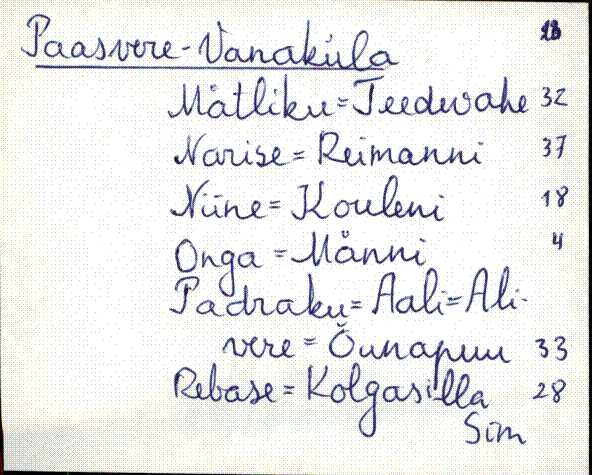 Paasvere-Vanaküla
Mätliku = Teedevahe 32
Narise = Reimanni 37
Niine = Kouleni 18
Onga = Männi 4
Padraku = Aali = Ali-
vere = Õunapuu 33
Rebase = Kolgasilla 28
Sim